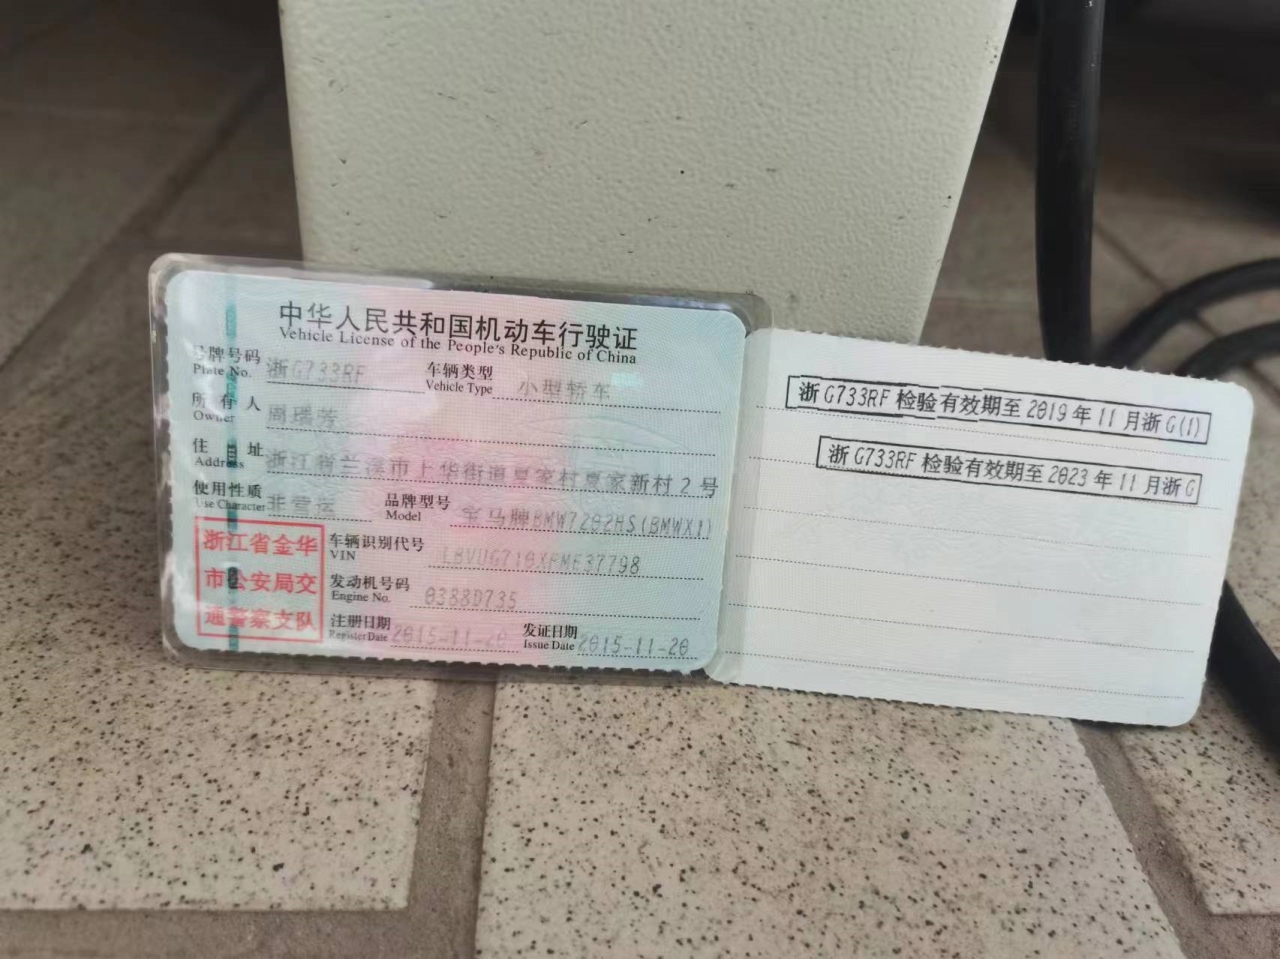 中华人民共和国机动车行驶证
Vehicle License of the People's Republic of China
号牌号码 浙G733RF 车辆类型 小型轿车
Plate No. Vehicle Type
所有人 周瑞芳
Owner
住址 浙江省兰溪市上华街道夏家村夏家新村2号
Address
使用性质 非营运 品牌型号 宝马牌BMW7202HS(BMWX1)
Use Character Model
浙江省金华
市公安局交
通警察支队
车辆识别代号
VIN
发动机号码 0388D735
Engine No.
注册日期 2015-11-20 发证日期 2015-11-20
Register Date Issue Date
浙G733RF检验有效期至2019年11月浙G(1)
浙G733RF检验有效期至2023年11月浙G